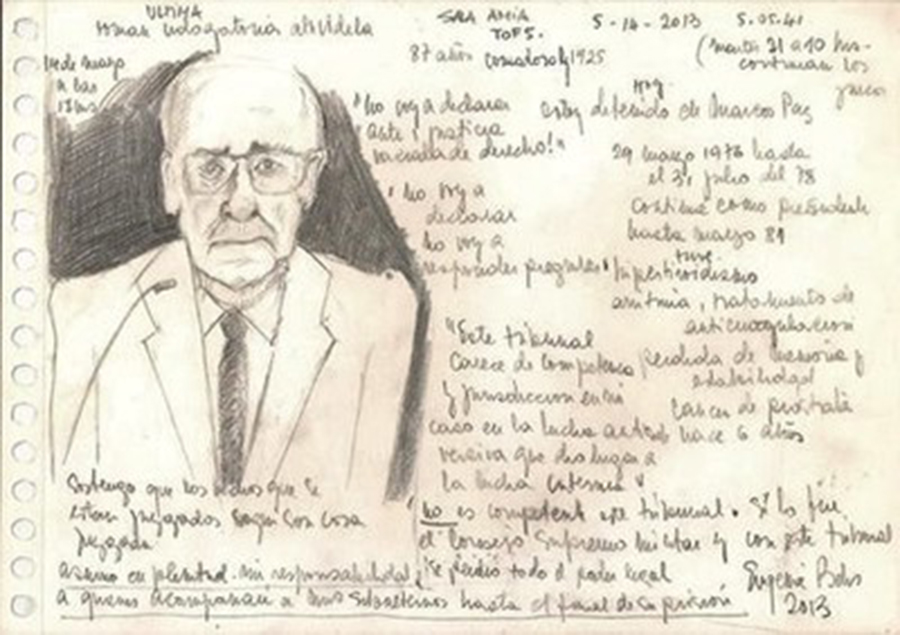 ULTIMA
a Videla
SALA AMIA
TOF5.
5-14-2013
5.05.41
87 años
1925
(martes 21 a 10 hrs-
continúan los
14 de mayo
a las
"no voy a declarar
ante justicia
de derecho!"
hoy
estoy detenido de Marcos Paz
29 marzo 1976 hasta
el 31 julio del 78
continué como presidente
hasta marzo 81
"no voy a
declarar
no voy a
responder preguntas"
tuve
arritmia, tratamiento de
anticoagulación
"Este tribunal
carece de competencia
y jurisdicción en mi
caso en la lucha
que dio lugar a
la lucha interna"
perdida de memoria y
estabilidad
cancer de prostata
hace 6 años
Sostengo que los hechos que se
juzgados son cosa
juzgada
no es competente este tribunal. Si lo fue
el Consejo Supremo Militar y con este tribunal
se perdió todo el poder legal
asumo en plenitud mi responsabilidad
a quienes acompañan a mis subalternos hasta el final de su prisión
Eugenia Bekis
2013